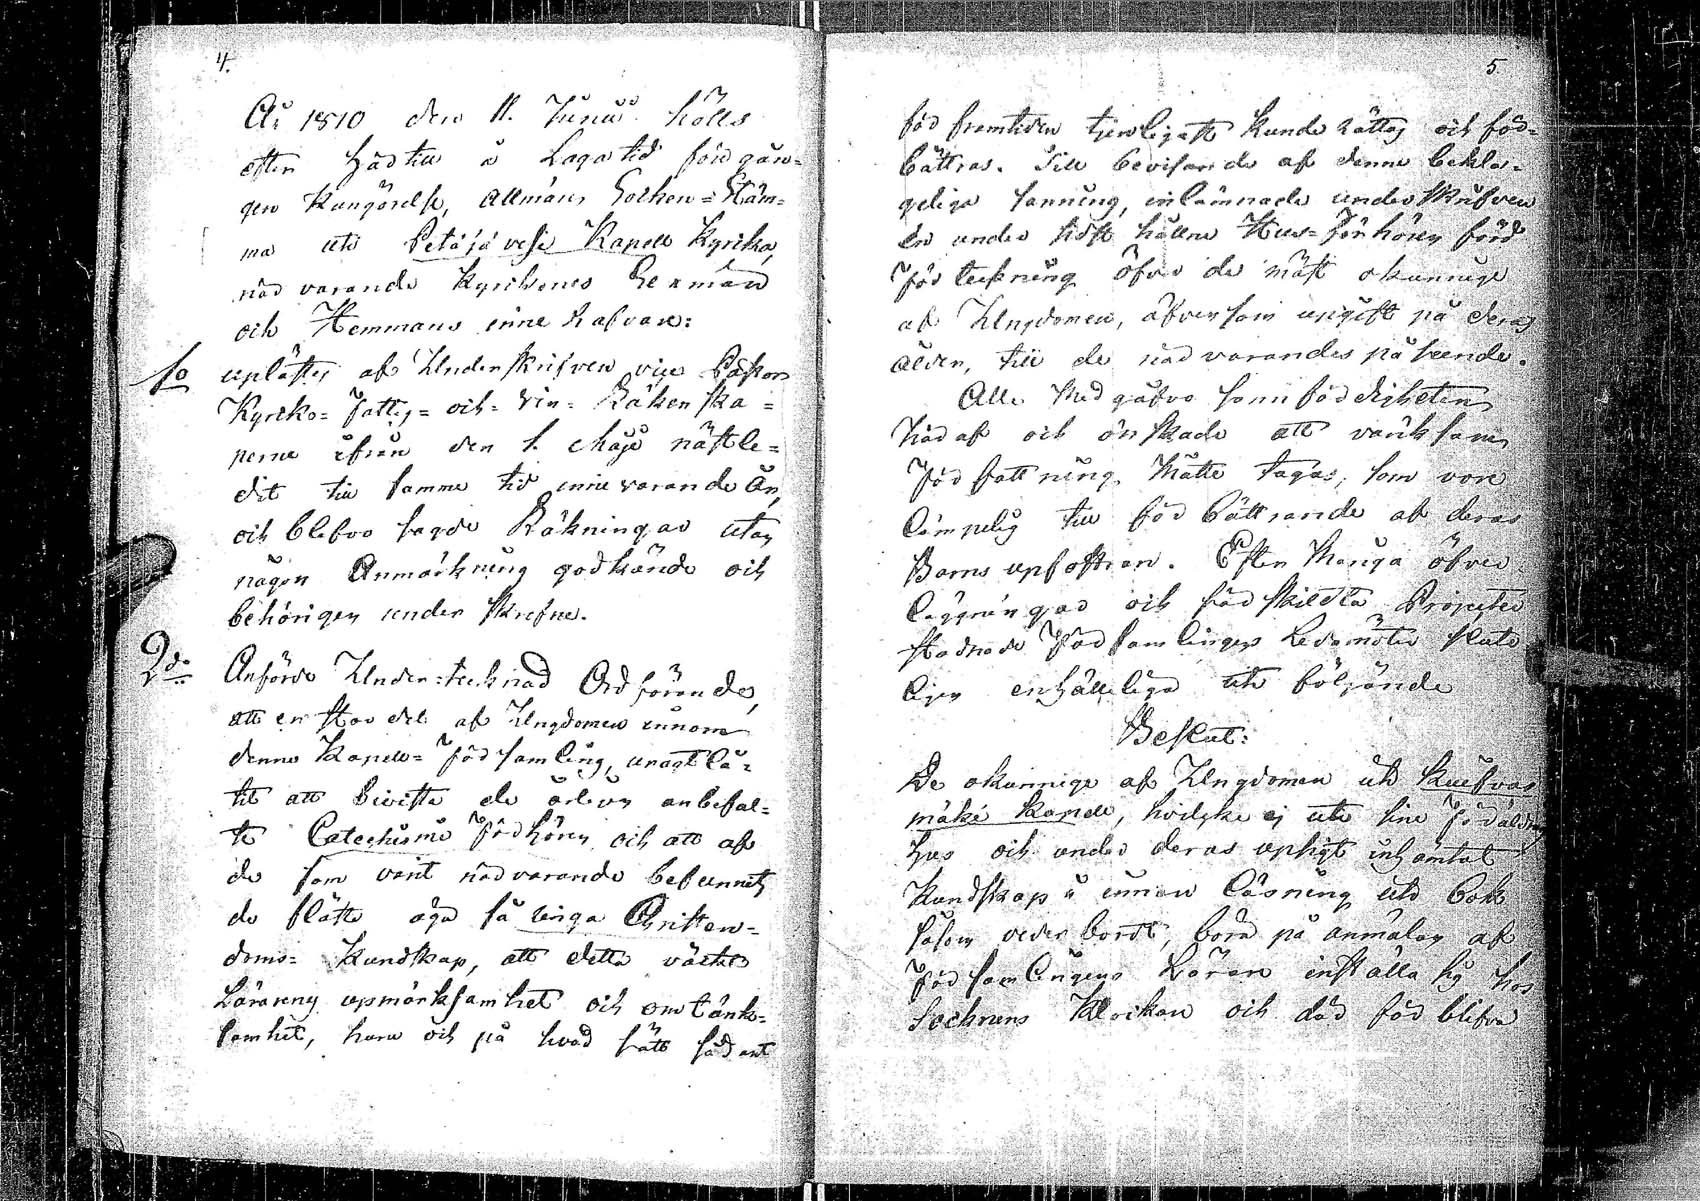 4.
År 1810 den 11. Junii hölls
efter här till å Laga tid före gån-
gen Kungörelse, Allmän Socken-Stäm-
ma uti Petäjävesi Kapell Kyrka,
när varande Kyrkones Sexmän
och Hemmans inne hafvare:
1o upläses af Underskrifven vice Pastor
Kyrko- Fattig- och Vin- Räkenska-
perne ifrån den 1. Maji nästle-
dit till samma tid innevarande År,
och blefvo sagde Räkningar utan
någon Anmärkning godkände och
behörigen under skrefne.
2do Anförde Under-tecknad Ordförande,
att en stor del af Ungdomen innom
denna Kapell-Församling, uragtlå-
tit att bivista de årligen anbefal-
te Catechismi Förhören och att af
de som varit närvarande befunnits
de fläste äga så ringa Christen-
doms- Kundskap, att detta väckt
Lärarens upmärksamhet och omtänk-
samhet, huru och på hvad sätt sådant
5.
för framtiden tjenligast kunde rättas och för-
bättras. Till bevisande af denne bekla-
geliga sanning, inlämnade underskrifven
en under sidst hållne Hus-Förhören förd
Förteckning öfver de mäst okunnige
af Ungdomen, äfvensom upgift på deras
ålder, till de närvarandes påseende.
Alle medgåfvo sannfärdigheten
häraf och önskade att värksam
Författning måtte tagas, som vore
lämpelig till förbättrande af deras
Barns upfostran. Efter många öfver-
läggningar och särskildta Projecter
stadnade Församlingens Ledamöter slute-
ligen enhälleliga uti följande
Beslut:
De okunnige af Ungdomen uti Kuifvas
mäki Kapell, hvilka ej uti sine Föräldrars
hus och under deras upsigt inhämtat
Kundskap i innan läsning uti bok
såsom vederbordt, böra på anmälan af
Församlingens Lärare inställa sig hos
Socknens Klockare och där för blifva